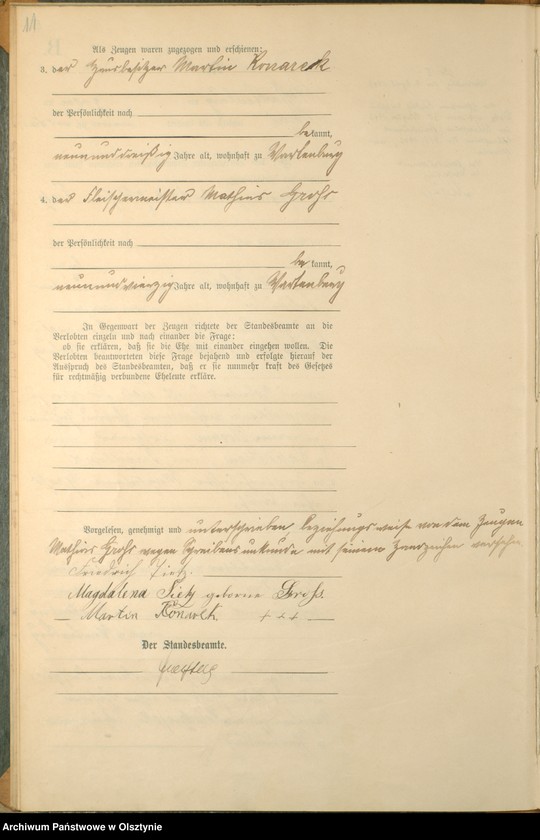 11
Als Zeugen waren zugezogen und erschienen:
3. der Hausbesitzer Martin Konarek
der Persönlichkeit nach
bekannt,
neununddreißig Jahre alt, wohnhaft zu Wartenburg
4. der Fleischermeister Mathias Groß
der Persönlichkeit nach
bekannt,
neunundvierzig Jahre alt, wohnhaft zu Wartenburg
In Gegenwart der Zeugen richtete der Standesbeamte an die
Verlobten einzeln und nach einander die Frage:
ob sie erklären, daß sie die Ehe mit einander eingehen wollen. Die
Verlobten beantworteten diese Frage bejahend und erfolgte hierauf der
Ausspruch des Standesbeamten, daß er sie nunmehr kraft des Gesetzes
für rechtmäßig verbundene Eheleute erkläre.
Vorgelesen, genehmigt und unterschrieben beziehungsweise von dem Zeugen
Mathias Groß wegen Schreibensunkunde mit seinem Handzeichen versehen
Friedrich Tietz.
Magdalena Tietz geborene Gross.
Martin Konarek. +++
Der Standesbeamte.
Archiwum Państwowe w Olsztynie